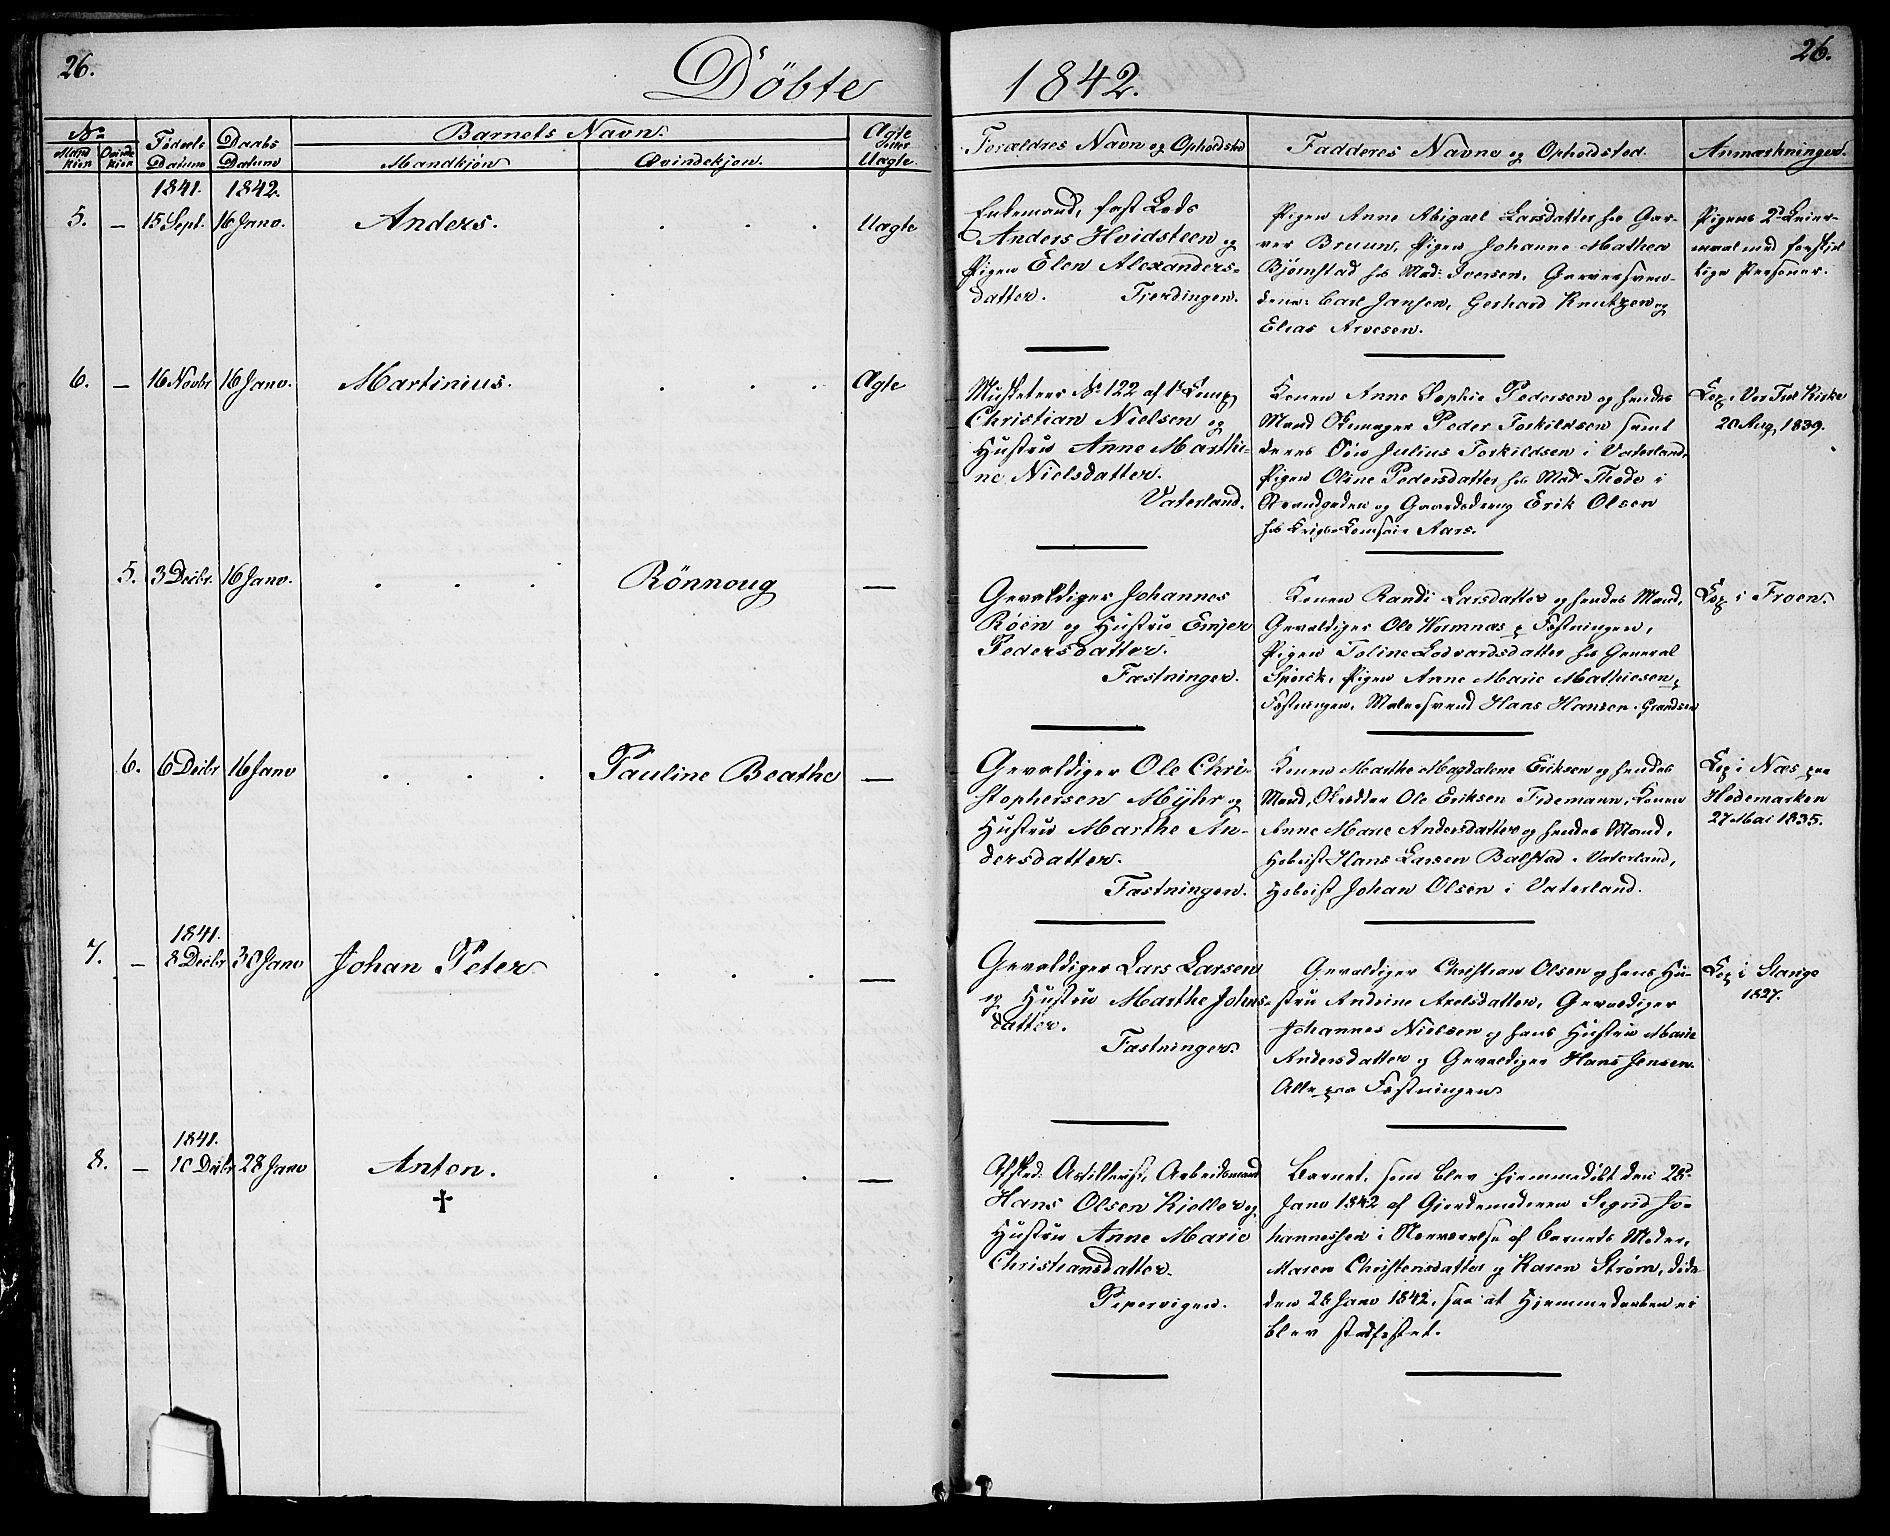 26.
Döbte
1842.
26.
No
Mandkjön
Qvindekjön
Födsels Datum
Daabs Datum
Barnets Navn.
Mandkjön
Qvindekjön.
Ægte eller Uægte.
Forældres Navn og Opholdsted
Fadderes Navne og Opholdsted.
Anmærkninger.
1841. 1842.
5. — 15 Sept. 16 Janv. Anders. Uægte
Enkemand,
Anders Hvidsteen og
Pigen Elen Alexanders-
datter. Fjerdingen.
Pigen Anne Abigael Larsdatter hos Gar-
ver Bruun, Pigen Johanne Mathea
Bjørnstad hos Mad: Iversen, Garversven-
dene: Carl Jansen, Gerhard Knutzen og
Elias Arvesen.
Pigens 2d Leier-
maal med forskjel
lige Personer.
6. — 16 Novbr 16 Janv. Martinius. Ægte
Musketeer No 122 af 1ste Comp
Christian Nielsen og
Hustru Anne Marthi-
ne Nielsdatter.
Vaterland.
Konen Anne Sophie Pedersen og hendes
Mand Peder Torkildsen samt
deres Søn Julius Torkildsen i Vaterland,
Pigen Oline Pedersdatter hos Mad: Thode i
Strandgaden og Gaardsdreng Erik Olsen
hos Krigs-Comsair Aars.
Cop. i Vor Frel Kirke
20 Aug. 1839.
5. 3 Decbr 16 Janv. Rönnoug —
Gevaldiger Johannes
Röen og Hustru Emjer
Pedersdatter.
Fæstningen.
Konen Randi Larsdatter og hendes Mand,
Gevaldiger Ole Wormnæs p Fæstningen,
Pigen Toline Lodvardsdatter hos General
Spörck, Pigen Anne Marie Mathiesen p
Fæstningen, Malersvend Hans Hansen Grandsen
Cop. i Froen.
6. 6 Decbr 16 Janv Pauline Beathe —
Gevaldiger Ole Chri-
stophersen Mÿhr og
Hustru Marthe An-
dersdatter.
Fæstningen.
Konen Marthe Magdalene Eriksen og hendes
Mand, Skrædder Ole Eriksen Tidemann, Konen
Anne Marie Andersdatter og hendes Mand,
Hoboist Hans Larsen Balstad i Vaterland,
Hoboist Johan Olsen i Vaterland.
Cop. i Næs paa
Hedemarken
27 Mai 1835.
1841.
7. — 8 Decbr 30 Janv Johan Peter —
Gevaldiger Lars Larsen
og Hustru Marthe Johns-
datter.
Fæstningen.
Gevaldiger Christian Olsen og hans Hu-
stru Andrine Axelsdatter, Gevaldiger
Johannes Nielsen og hans Hustru Marie
Andersdatter og Gevaldiger Hans Jensen
Alle paa Fæstningen.
Cop. i Stange
1827.
1841.
8. — 10 Decbr 28 Janv Anton. —
†
Afsked: Artillerist, Arbeidsmand
Hans Olsen Kieller og
Hustru Anne Marie
Christiansdatter.
Pipervigen.
Barnet, som blev hjemmedöbt den 28d
Janv 1842 af Gjordemoderen Sigrid Jo-
hannessen i Nærværelse af Barnets Moder,
Maren Christensdatter og Karen Strøm, døde
den 28 Janv 1842, saa at Hjemmedaaben ei
blev stadfæstet.